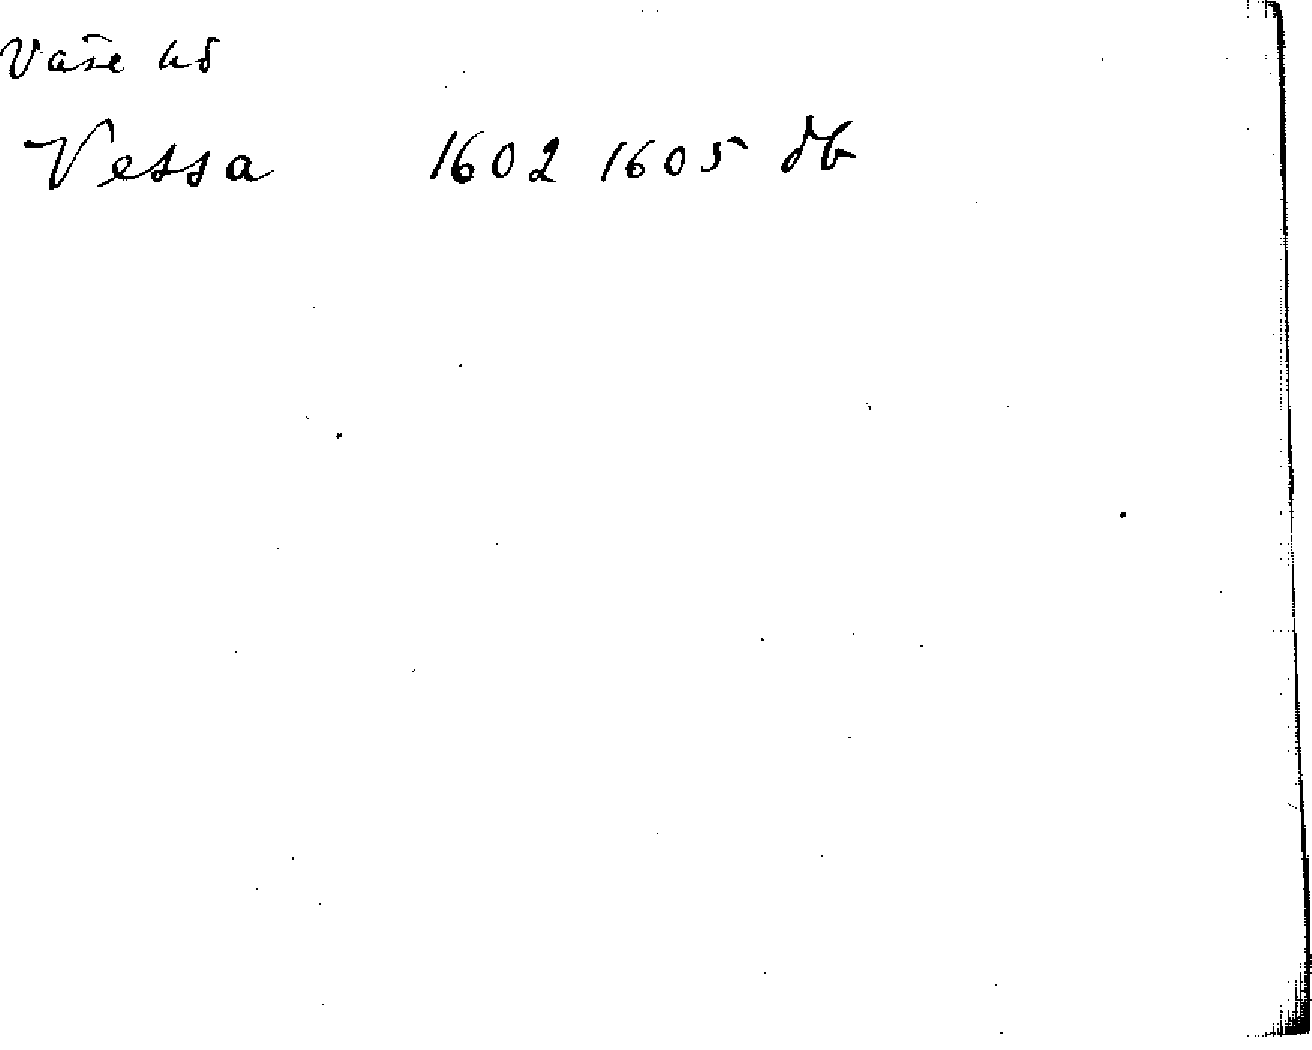 Vaše us
Vessa 1602 1605 db